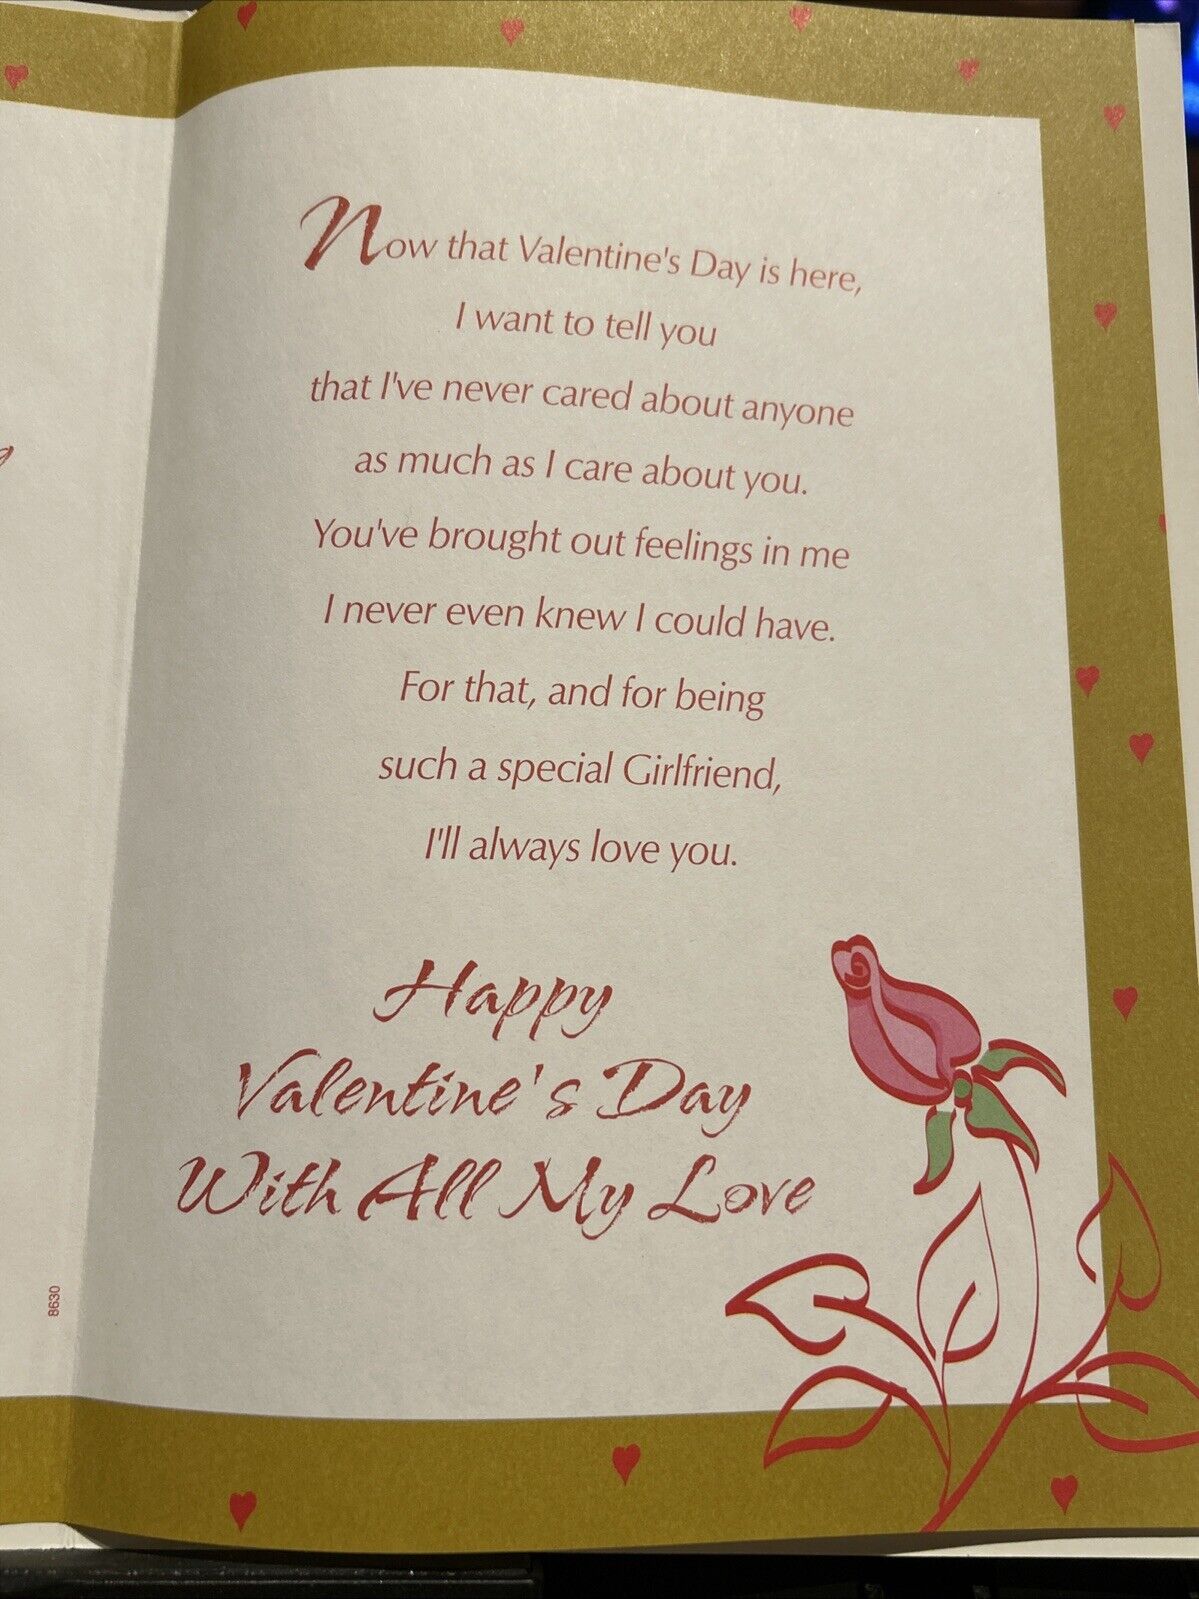 Now that Valentine's Day is here,
I want to tell you
that I've never cared about anyone
as much as I care about you.
You've brought out feelings in me
I never even knew I could have.
For that, and for being
such a special Girlfriend,
I'll always love you.
Happy
Valentine's Day
With All My Love
8630